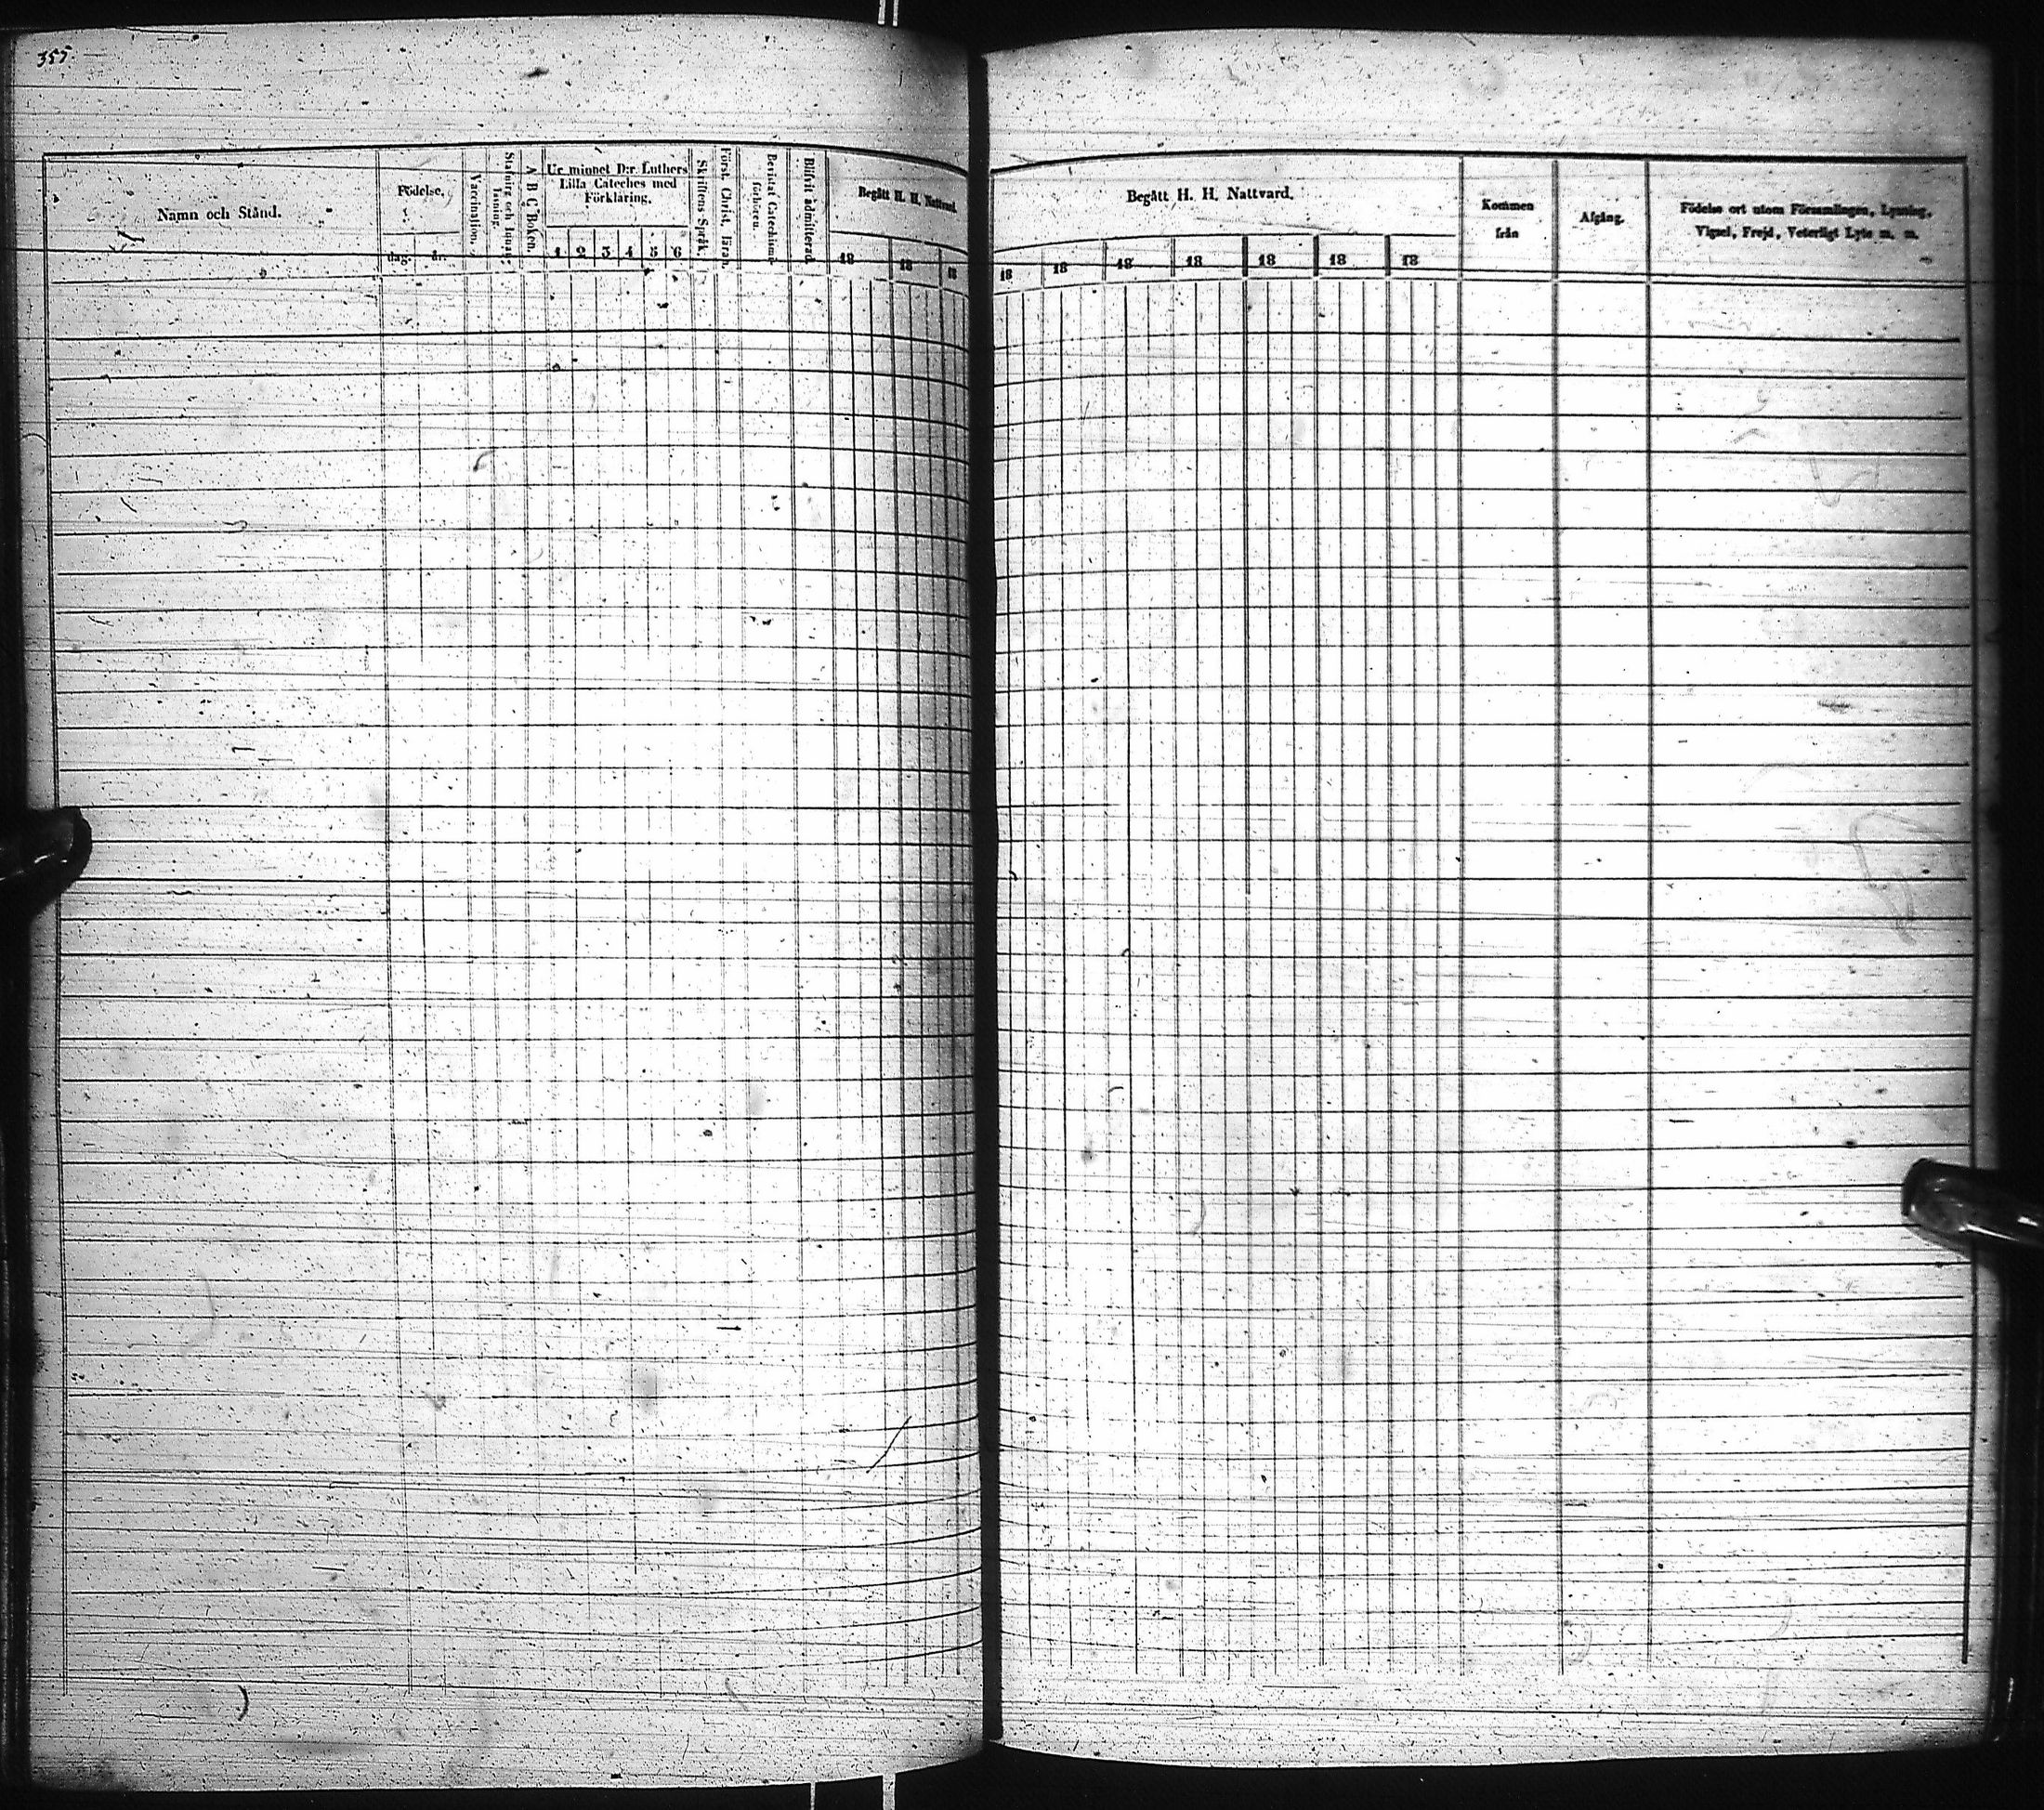 355.
Namn och Stånd.
Födelse,
dag. år.
Vaccination.
Stafning och Innanläsning.
A B C Boken.
Ur minnet D:r Luthers
Lilla Cateches med
Förklaring.
1 2 3 4 5 6
Skriftens Språk.
Först. Christ. läran.
Bevistat Catechismi-
förhören.
Blifvit admitterad.
Begått H. H. Nattvard.
18 18 18
Begått H. H. Nattvard.
18 18 18 18 18 18 18
Kommen
från
Afgång.
Födelse ort utom Församlingen, Lysning,
Vigsel, Frejd, Veterligt Lyte m. m.